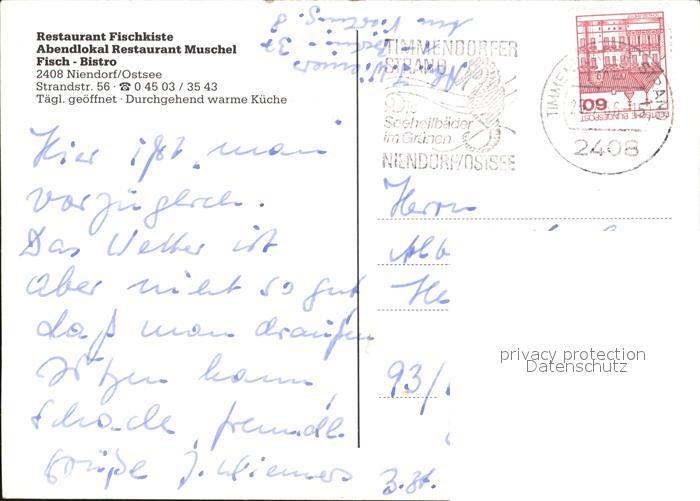 Restaurant Fischkiste
Abendlokal Restaurant Muschel
Fisch - Bistro
2408 Niendorf/Ostsee
Strandstr. 56 · ☎ 0 45 03 / 35 43
Tägl. geöffnet · Durchgehend warme Küche
Hier ißt man
vorzüglich.
Das Wetter ist
aber nicht so gut
daß man draußen
sitzen kann,
schade, freundl.
Grüße J. Wiemers
TIMMENDORFER
STRAND
Seeheilbäder
im Grünen
NIENDORF/OSTSEE
2408
60
DEUTSCHE BUNDESPOST
Herrn
Alb
He
93/
z. Zt.
privacy protection
Datenschutz